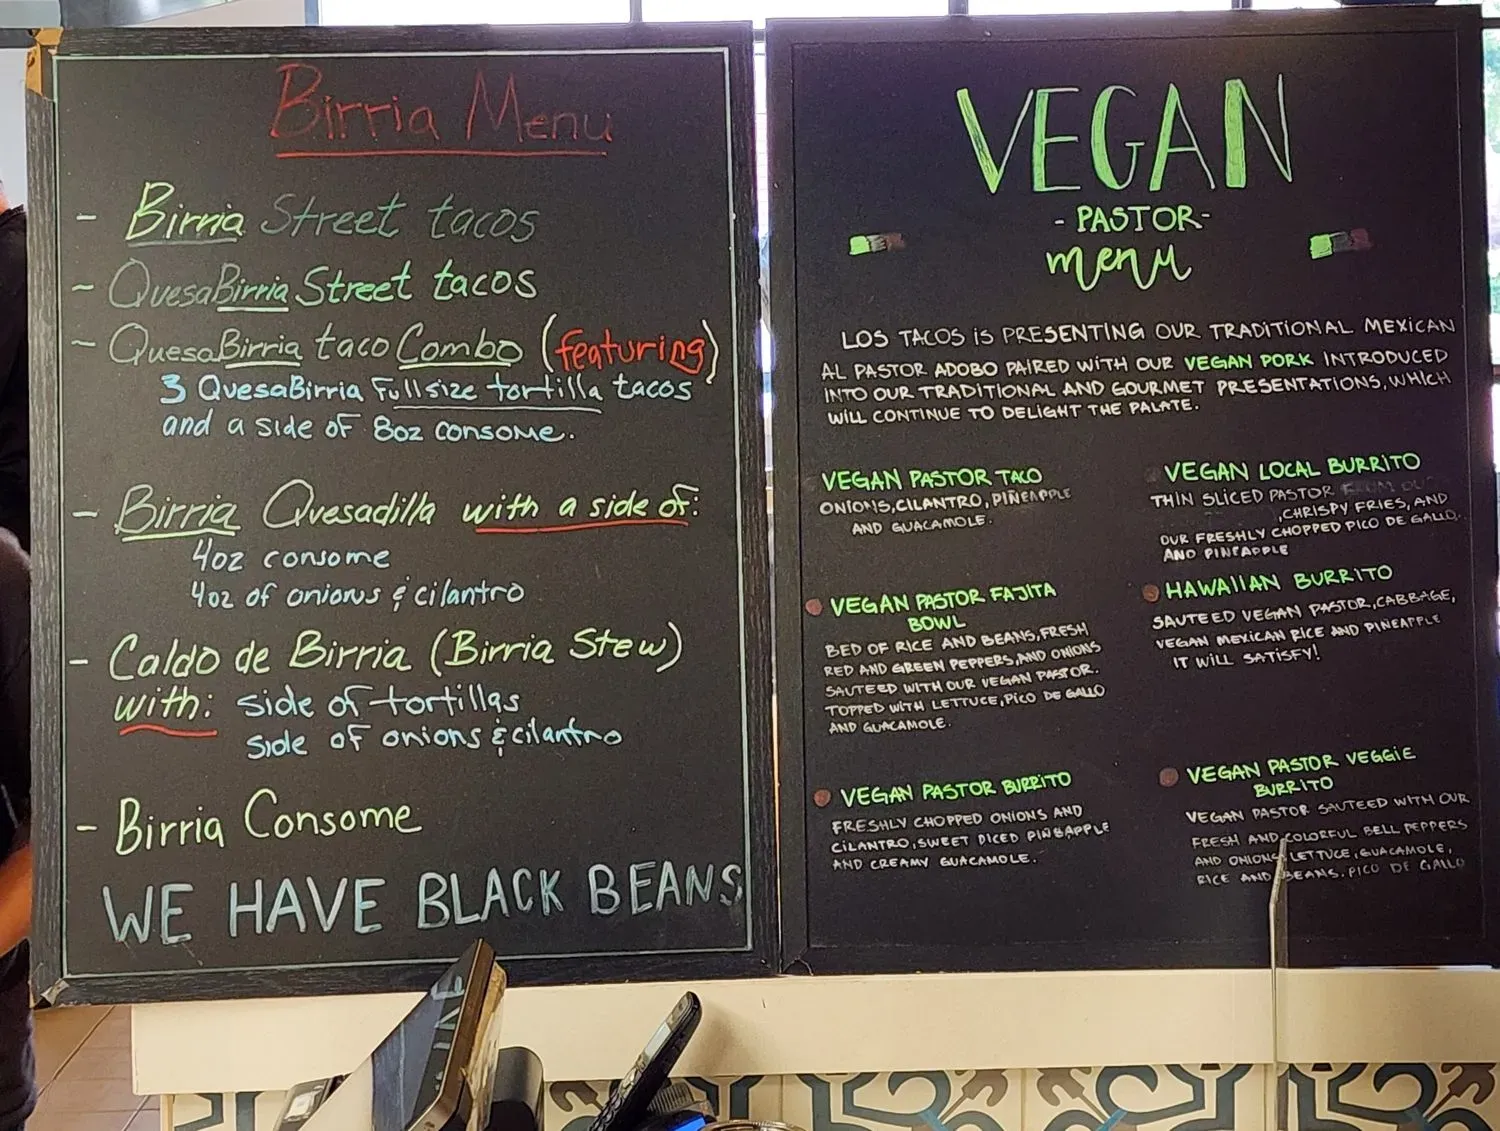 Birria Menu
- Birria Street tacos
- QuesaBirria Street tacos
- QuesaBirria taco Combo (featuring)
3 QuesaBirria Fullsize tortilla tacos
and a side of 8oz consome.
- Birria Quesadilla with a side of:
4oz consome
4oz of onions & cilantro
- Caldo de Birria (Birria Stew)
with: side of tortillas
side of onions & cilantro
- Birria Consome
WE HAVE BLACK BEANS
VEGAN
- PASTOR -
menu
LOS TACOS IS PRESENTING OUR TRADITIONAL MEXICAN
AL PASTOR ADOBO PAIRED WITH OUR VEGAN PORK INTRODUCED
INTO OUR TRADITIONAL AND GOURMET PRESENTATIONS, WHICH
WILL CONTINUE TO DELIGHT THE PALATE.
VEGAN PASTOR TACO
ONIONS, CILANTRO, PIÑEAPPLE
AND GUACAMOLE.
VEGAN PASTOR FAJITA
BOWL
BED OF RICE AND BEANS, FRESH
RED AND GREEN PEPPERS, AND ONIONS
SAUTEED WITH OUR VEGAN PASTOR.
TOPPED WITH LETTUCE, PICO DE GALLO
AND GUACAMOLE.
VEGAN PASTOR BURRITO
FRESHLY CHOPPED ONIONS AND
CILANTRO, SWEET DICED PINEAPPLE
AND CREAMY GUACAMOLE.
VEGAN LOCAL BURRITO
THIN SLICED PASTOR FROM OUR
, CHRISPY FRIES, AND
OUR FRESHLY CHOPPED PICO DE GALLO.
AND PINEAPPLE
HAWAIIAN BURRITO
SAUTEED VEGAN PASTOR, CABBAGE,
VEGAN MEXICAN RICE AND PINEAPPLE
IT WILL SATISFY!
VEGAN PASTOR VEGGIE
BURRITO
VEGAN PASTOR SAUTEED WITH OUR
FRESH AND COLORFUL BELL PEPPERS
AND ONIONS, LETTUCE, GUACAMOLE,
RICE AND BEANS, PICO DE GALLO